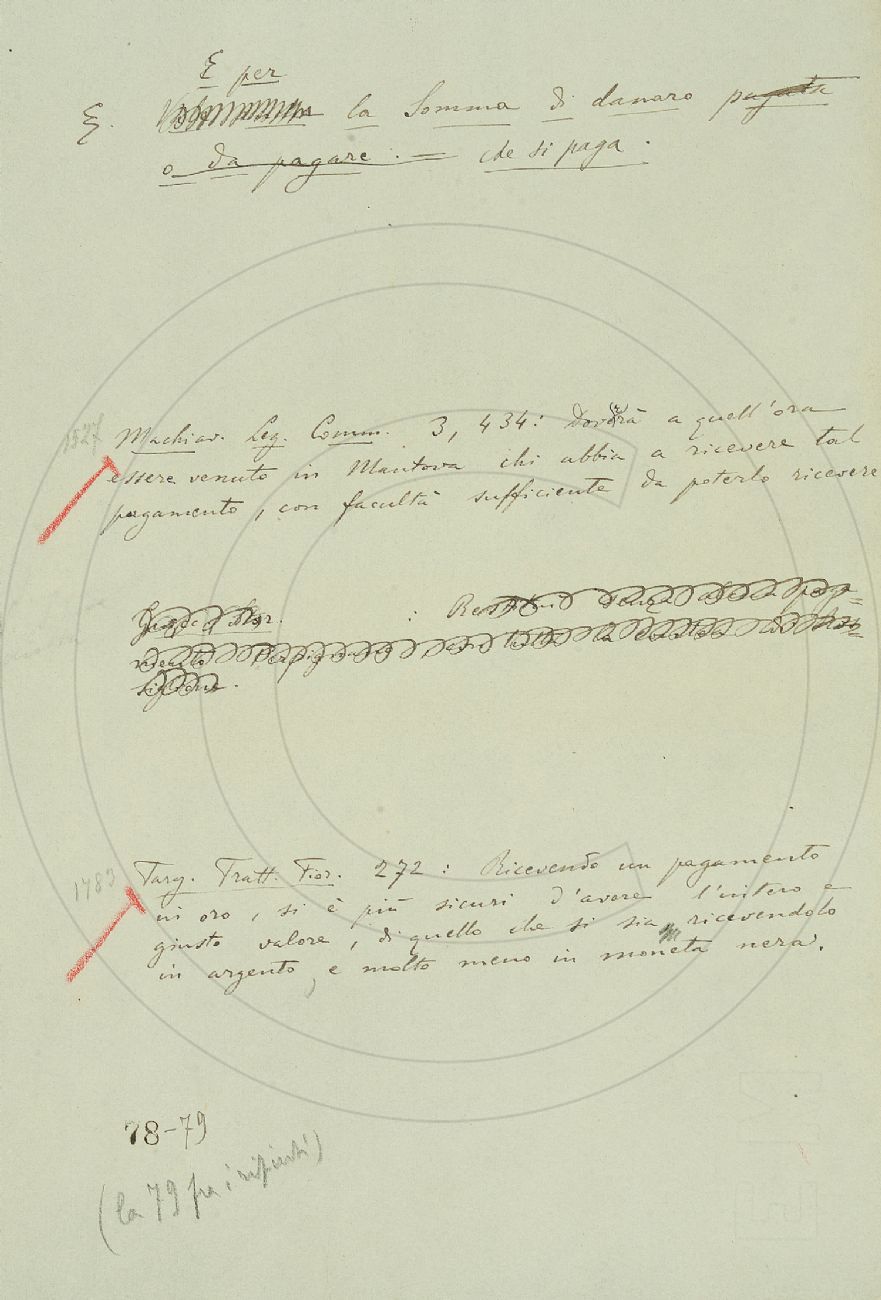 E per
§. la Somma di danaro pagata
o da pagare. = che si paga.
1527 Machiav. Leg. Comm. 3, 434: Dovrà a quell'ora
essere venuto in Mantova chi abbia a ricevere tal
pagamento, con facultà sufficiente da poterlo ricevere
senza
1783 Targ. Tratt. Fior. 272: Ricevendo un pagamento
in oro, si è più sicuri d'avere l'intero e
giusto valore, di quello che si sia ricevendolo
in argento, e molto meno in moneta nera.
78-79
(la 79 fra i rifiuti)